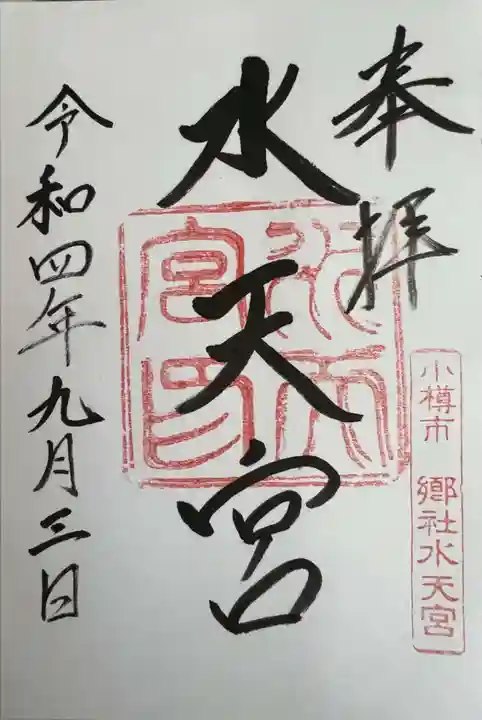 奉拝
小樽市 郷社水天宮
水天宮
水天宮印
令和四年九月三日